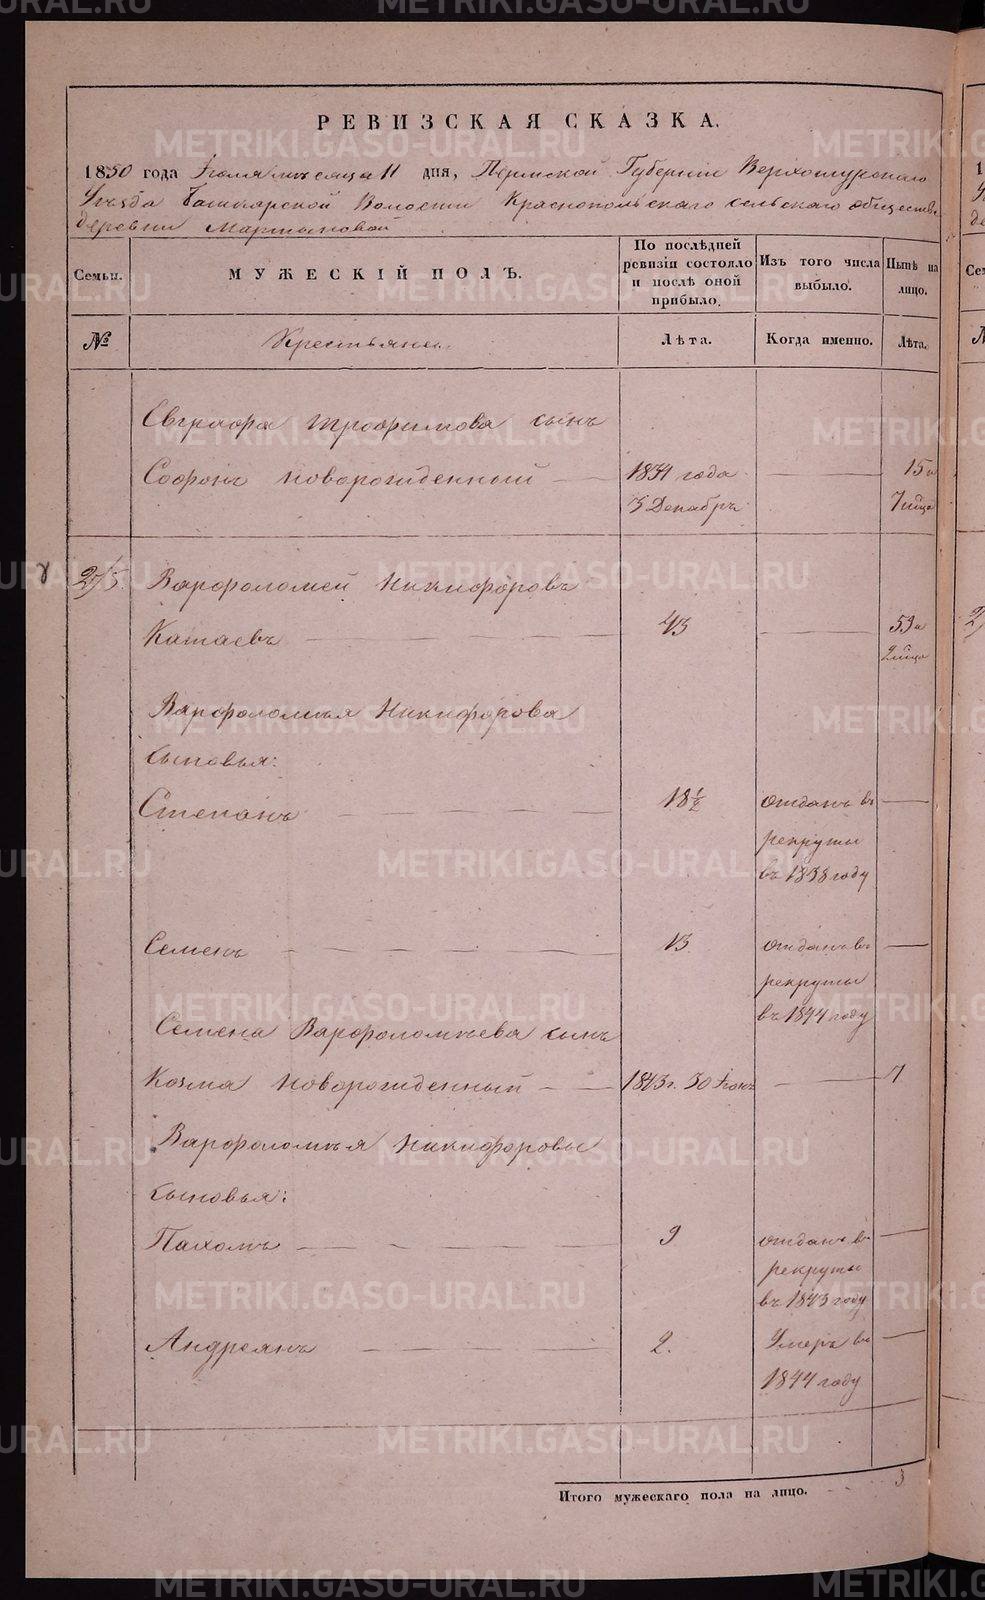 РЕВИЗСКАЯ СКАЗКА.
1850 года Июля месяца 11 дня, Пермской Губернии Верхотурскаго
Уѣзда Башкарской Волости Краснопольскаго сельскаго общества
деревни Мартыновой
Семьи. МУЖЕСКІЙ ПОЛЪ. По послѣдней ревизіи состояло и послѣ оной прибыло. Изъ того числа выбыло. Нынѣ на лицо.
№ Крестьяне. Лѣта. Когда именно. Лѣта.
Евграфа Трофимова сынъ
Софонъ новорожденный 1834 года 15 и
3 Декабръ 7 мцовъ
2/5. Варфоломей Никифоровъ
Катаевъ 43 59 и
2 мцов
Варфоломѣя Никифорова
сыновья:
Степанъ 18½ отданъ въ
рекруты
въ 1838 году
Семенъ 13 отданъ въ
рекруты
въ 1844 году
Семена Варфоломѣева сынъ
Козма новорожденный 1843 г. 30 Іюнъ 7
Варфоломѣя Никифоровы
сыновья:
Пахомъ 9 отданъ въ
рекруты
въ 1843 году
Андреянъ 2. Умеръ въ
1844 году
Итого мужескаго пола на лицо. 3
METRIKI.GASO-URAL.RU